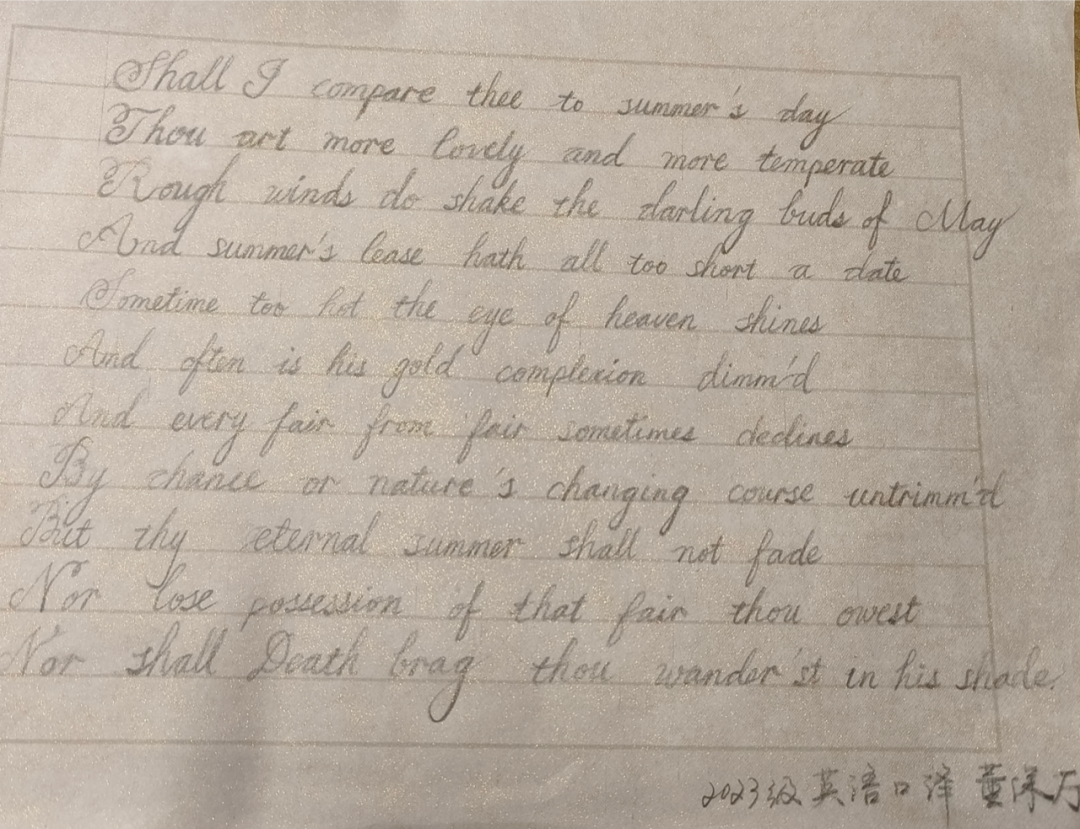 Shall I compare thee to summer's day
Thou art more lovely and more temperate
Rough winds do shake the darling buds of May
And summer's lease hath all too short a date
Sometime too hot the eye of heaven shines
And often is his gold complexion dimm'd
And every fair from fair sometimes declines
By chance or nature's changing course untrimm'd
But thy eternal summer shall not fade
Nor lose possession of that fair thou owest
Nor shall Death brag thou wander'st in his shade.
2023级 英语口译 董保万